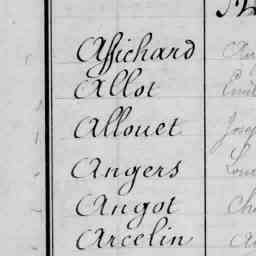 Affichard
Allot
Allouet
Angers
Angot
Arcelin